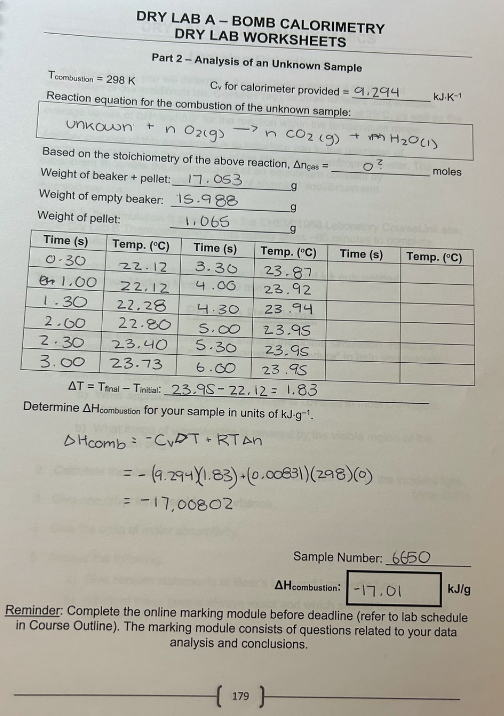 DRY LAB A – BOMB CALORIMETRY
DRY LAB WORKSHEETS
Part 2 – Analysis of an Unknown Sample
Tcombustion = 298 K Cv for calorimeter provided = 9.294 kJ·K⁻¹
Reaction equation for the combustion of the unknown sample:
unkown + n O2(g) → n CO2(g) + m H2O(l)
Based on the stoichiometry of the above reaction, Δngas = 0? moles
Weight of beaker + pellet: 17.053 g
Weight of empty beaker: 15.988 g
Weight of pellet: 1.065 g
Time (s) Temp. (°C) Time (s) Temp. (°C) Time (s) Temp. (°C)
0.30 22.12 3.30 23.87
1.00 22.12 4.00 23.92
1.30 22.28 4.30 23.94
2.00 22.80 5.00 23.95
2.30 23.40 5.30 23.95
3.00 23.73 6.00 23.95
ΔT = Tfinal – Tinitial: 23.95 - 22.12 = 1.83
Determine ΔHcombustion for your sample in units of kJ·g⁻¹.
ΔHcomb = -CvΔT + RTΔn
= - (9.294)(1.83) + (0.00831)(298)(0)
= -17.00802
Sample Number: 6650
ΔHcombustion: -17.01 kJ/g
Reminder: Complete the online marking module before deadline (refer to lab schedule
in Course Outline). The marking module consists of questions related to your data
analysis and conclusions.
179